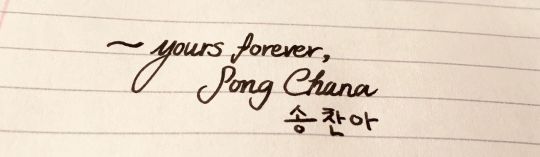 ~ yours forever,
Song Chana
송찬아